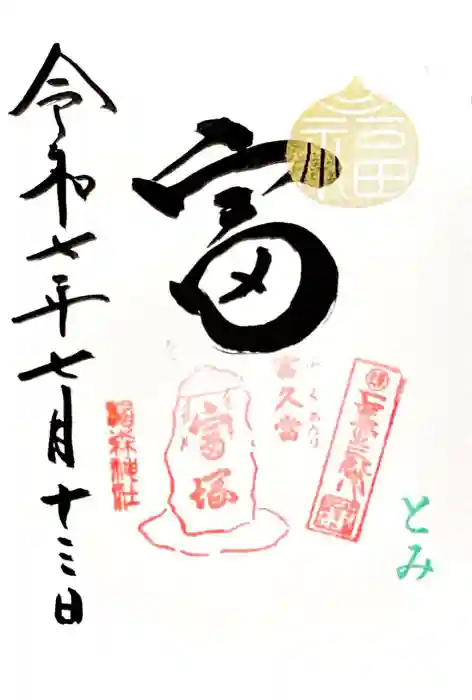 富
福
富久當
ふくあたり
富塚
とみ
椙森神社
令和七年七月十三日